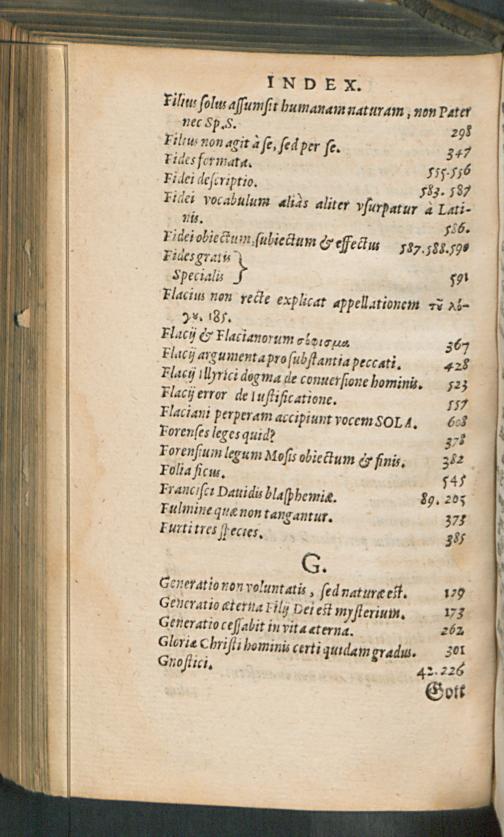 INDEX.
Filius solus assumsit humanam naturam, non Pater
nec Sp.S. 298
Filius non agit à se, sed per se. 347
Fides formata. 555.556
Fidei descriptio. 583. 587
Fidei vocabulum aliàs aliter vsurpatur à Lati-
nis. 586.
Fidei obiectum, subiectum & effectus 587.588.590
Fides gratis }
Specialis } 591
Flacius non recte explicat appellationem τȣ͂ λό-
γȣ. 185.
Flacij & Flacianorum σόφισμα 367
Flacij argumenta pro substantia peccati. 428
Flacij Illyrici dogma de conuersione hominis. 523
Flacij error de Iustificatione. 557
Flaciani perperam accipiunt vocem SOLA. 608
Forenses leges quid? 378
Forensium legum Mosis obiectum & finis. 382
Folia ficus. 545
Francisci Dauidis blasphemiæ. 89. 205
Fulmine quæ non tangantur. 373
Furti tres species. 385
G.
Generatio non voluntatis, sed naturæ est. 129
Generatio æterna Filij Dei est mysterium. 173
Generatio cessabit in vita æterna. 262
Gloriæ Christi hominis certi quidam gradus. 301
Gnostici. 42.226
Gott